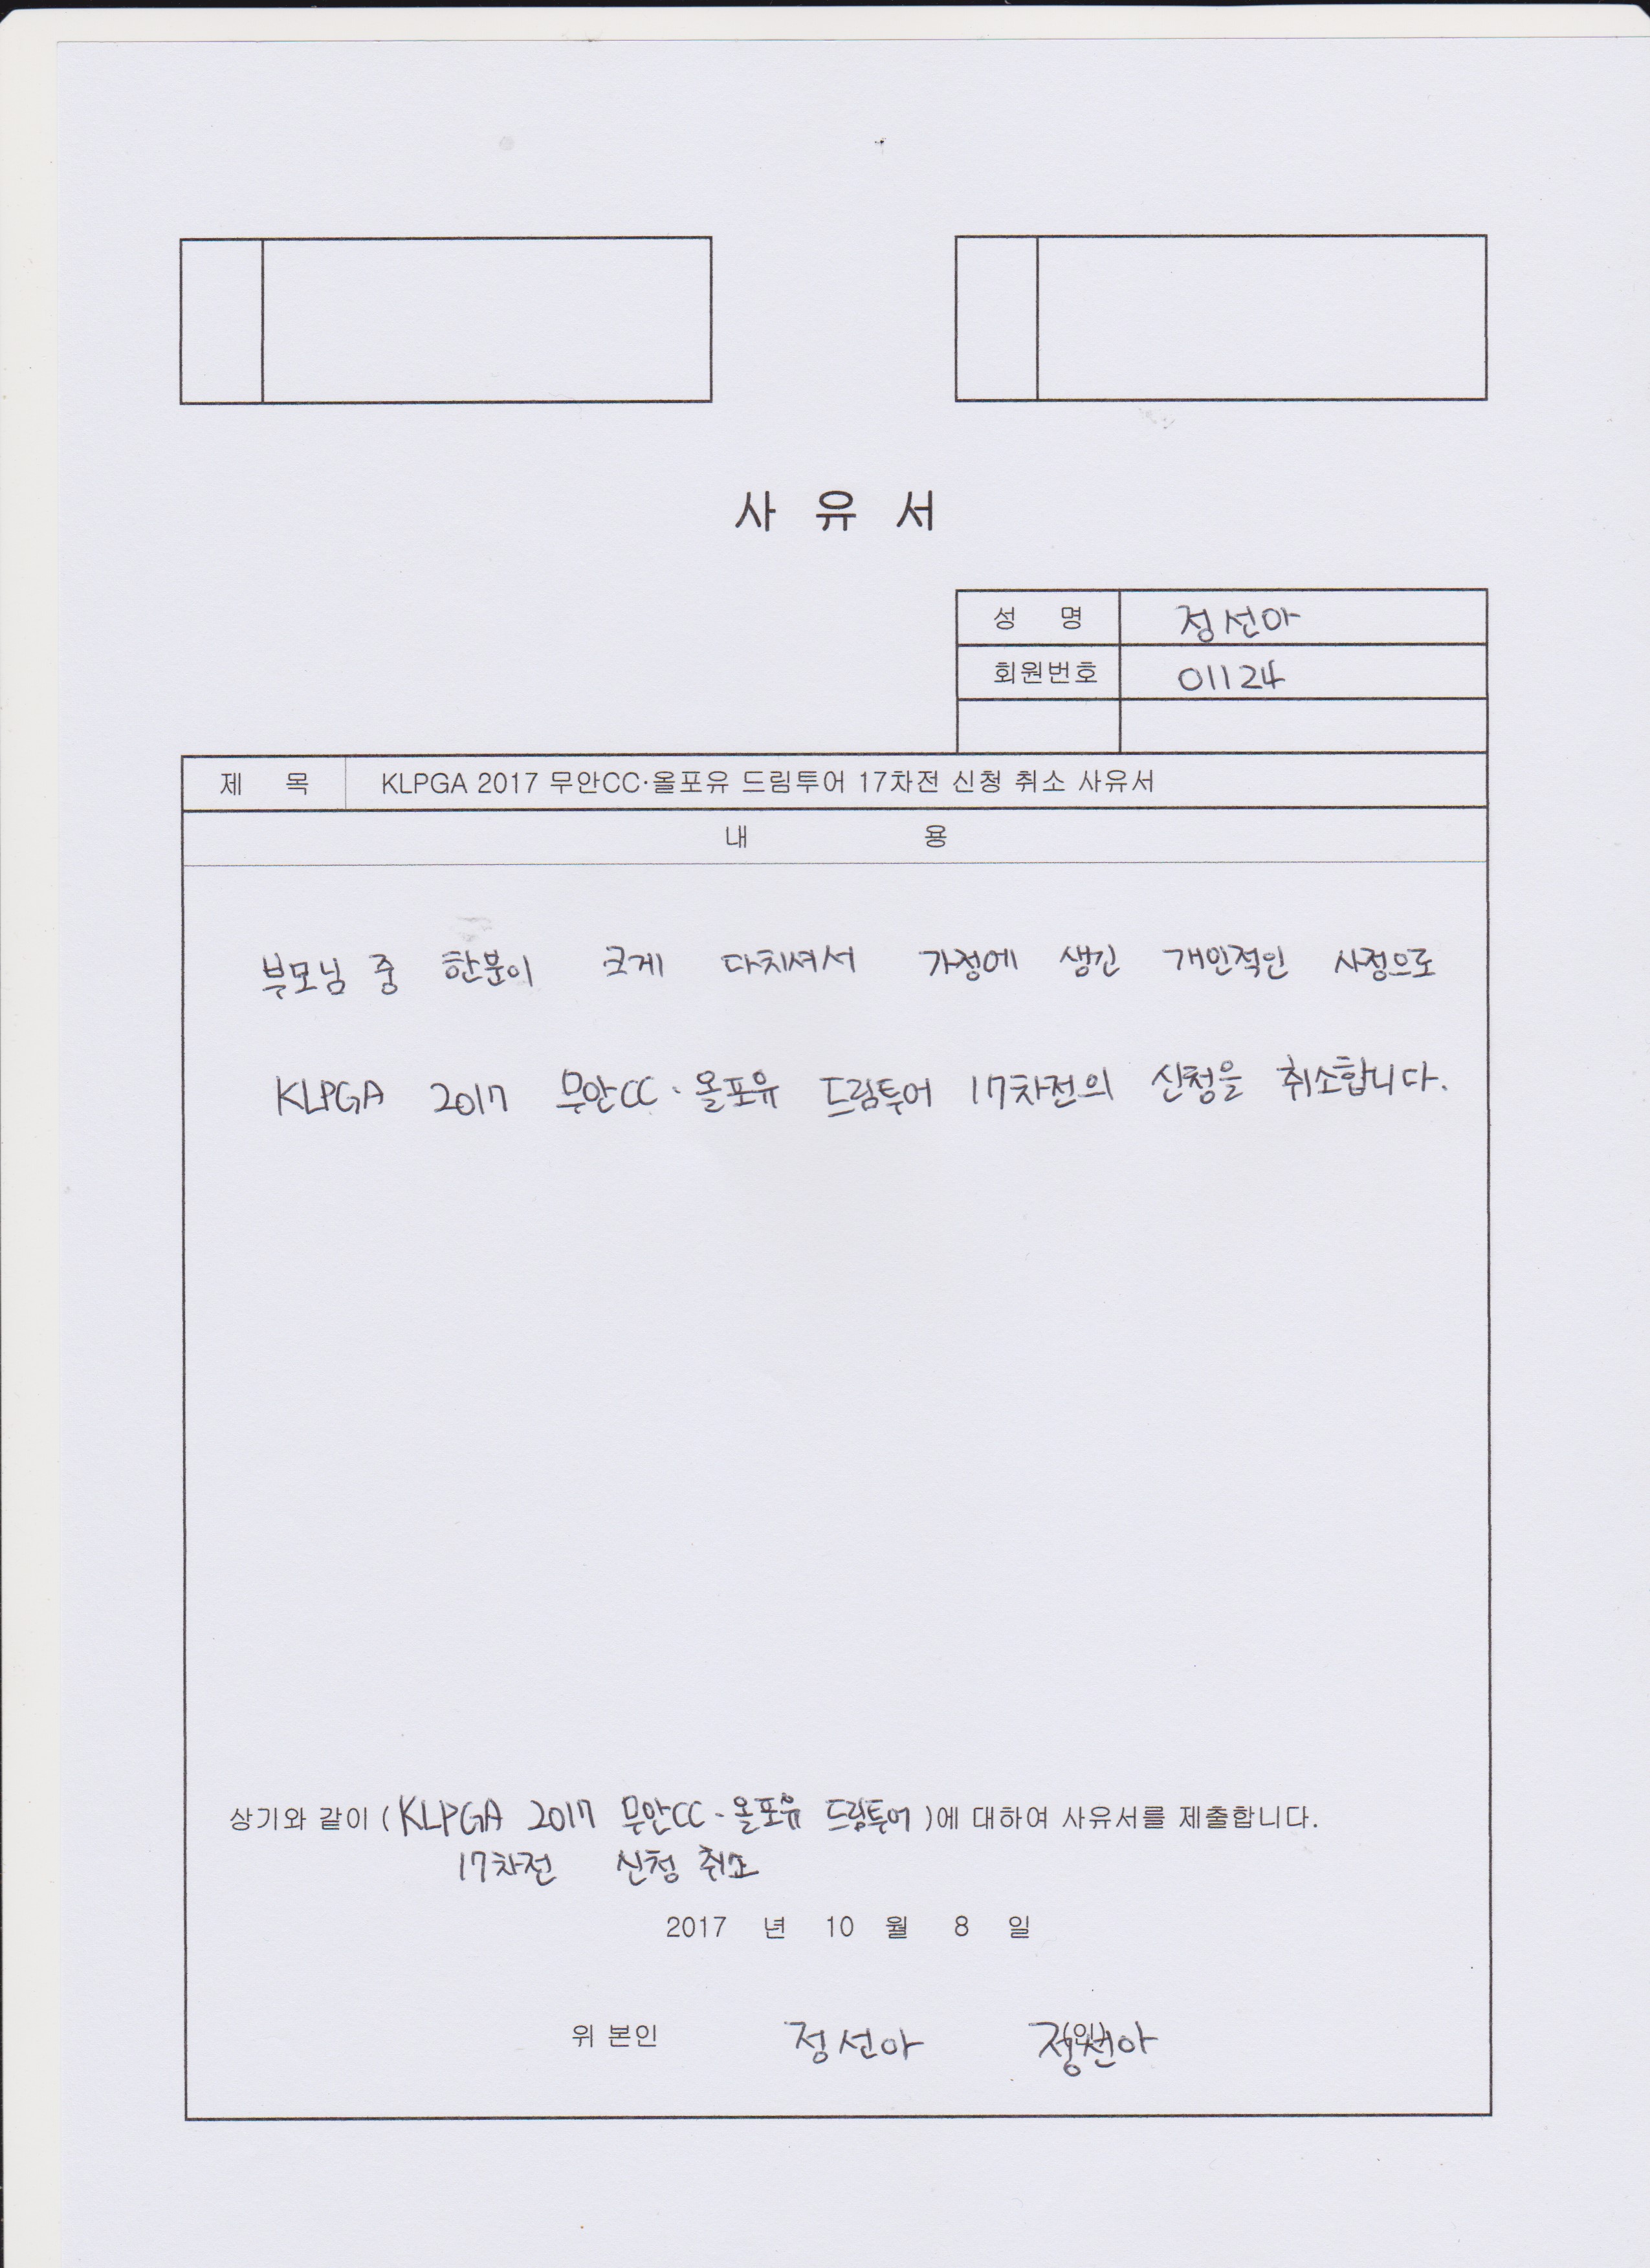 사 유 서
성 명 정선아
회원번호 01124
제 목 KLPGA 2017 무안CC·올포유 드림투어 17차전 신청 취소 사유서
내 용
부모님 중 한분이 크게 다치셔서 가정에 생긴 개인적인 사정으로
KLPGA 2017 무안CC·올포유 드림투어 17차전의 신청을 취소합니다.
상기와 같이 ( KLPGA 2017 무안CC·올포유 드림투어 )에 대하여 사유서를 제출합니다.
17차전 신청 취소
2017 년 10 월 8 일
위 본인 정선아 (인) 정선아